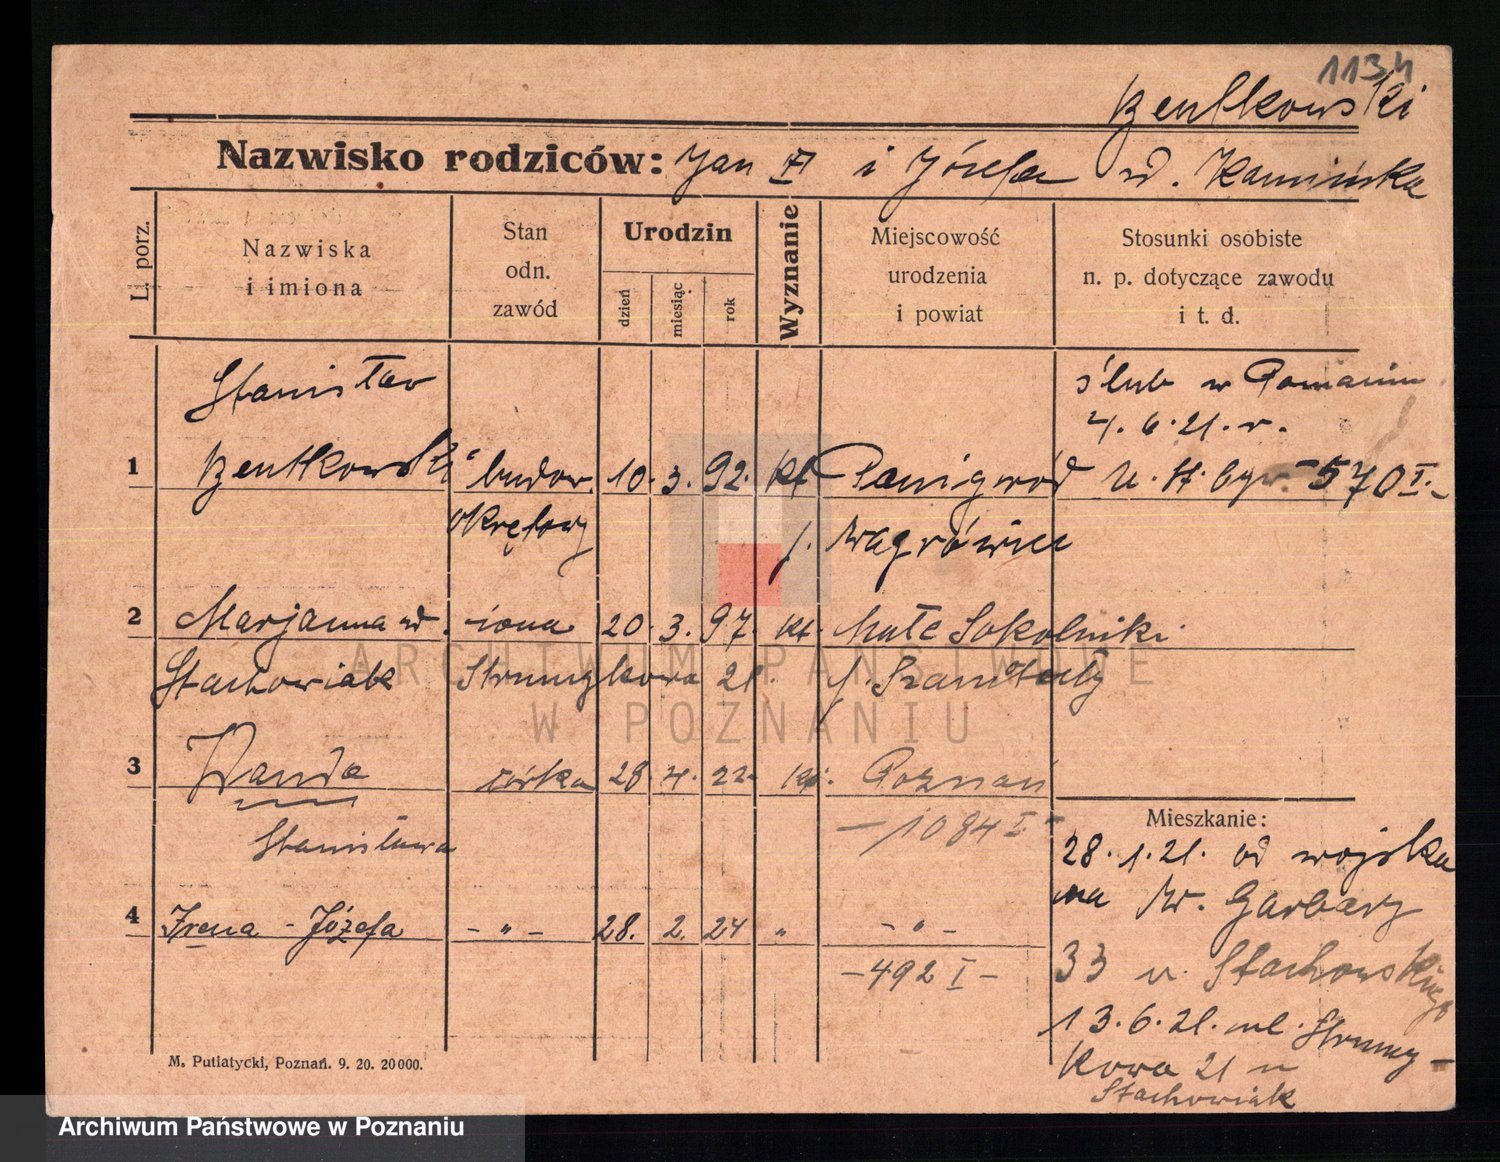 1134
Bentkowski
Nazwisko rodziców: Jan II i Józefa ur. Kamińska
L. porz.
Nazwiska
i imiona
Stan
odn.
zawód
Urodzin
dzień
miesiąc
rok
Wyznanie
Miejscowość
urodzenia
i powiat
Stosunki osobiste
n. p. dotyczące zawodu
i t. d.
Stanisław
ślub w Poznaniu
4. 6. 21. r.
1 Bentkowski budow. 10. 3. 92. kt Panigródź 570 I.
okrętowy p. Wągrówiec
2 Marjanna ur. żona 20. 3. 97. kt. Małe Sokolniki
Stachowiak Strumykowa 21. p. Szamotuły
3 Wanda córka 28. 4. 22. kt. Poznań
Stanisława
– 1084 I –
4 Irena - Józefa – " – 28. 2. 24 " – " –
– 492 I –
Mieszkanie:
28. 1. 21. od wojska
na W. Garbary
33 u. Stachowskiego
13. 6. 21. ul. Strumy-
kowa 21 u
Stachowiak
M. Putiatycki, Poznań. 9. 20. 20000.
ARCHIWUM PAŃSTWOWE
W POZNANIU
Archiwum Państwowe w Poznaniu